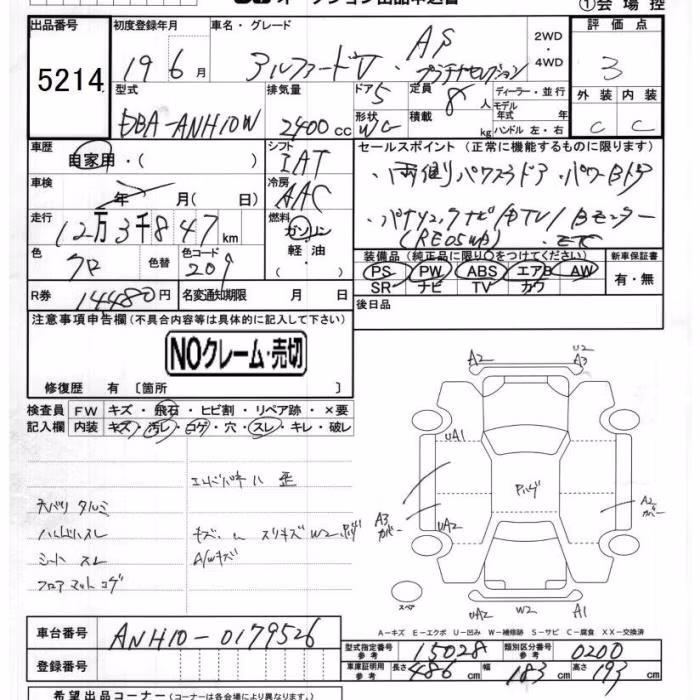 オークション出品申込書 ①会場控
出品番号 初度登録年月 車名・グレード 2WD・4WD 評価点
5214 19 6月 アルファードV・AS プラチナセレクション 3
型式 排気量 ドア 5 定員 8人 ディーラー・並行 外装 内装
DBA-ANH10W 2400cc 形状 WG 積載 kg モデル年式 年 ハンドル 左・右 C C
車歴 シフト セールスポイント(正常に機能するものに限ります)
自家用・( ) IAT ・両側パワスラドア・パワーBドア
車検 年 月(日) 冷房 AAC
走行 12万3千847km 燃料 ガソリン・軽油 ・パナソニックナビ/DTV/Bモニター
色 クロ 色替 色コード 209 装備品(純正品に限り○をつけてください) 新車保証書
PS PW ABS エアB AW 有・無
SR ナビ TV カワ
R券 14480円 名変通知期限 月 日 後日品
注意事項申告欄(不具合内容等は具体的に記入して下さい)
NOクレーム・売切
修復歴 有〔箇所 〕
検査員 FW キズ・飛石・ヒビ割・リペア跡・×要
記入欄 内装 キズ・汚レ・コゲ・穴・スレ・キレ・破レ
A2 U2 A3
UA1
Pハゲ
A3 カバー UA2 A2 カバー
スペア UA2 W2 A1
ネバリ タルミ
ハンドルスレ
シート スレ
フロアマットコゲ
A/Wキズ
A-キズ E-エクボ U-凹み W-補修跡 S-サビ C-腐食 XX-交換済
車台番号 ANH10-0179526
型式指定番号 参考 15028 類別区分番号 参考 0200
登録番号 車庫証明用 参考 長さ 486cm 幅 183cm 高さ 193cm
希望出品コーナー(コーナーは各会場により異なります)